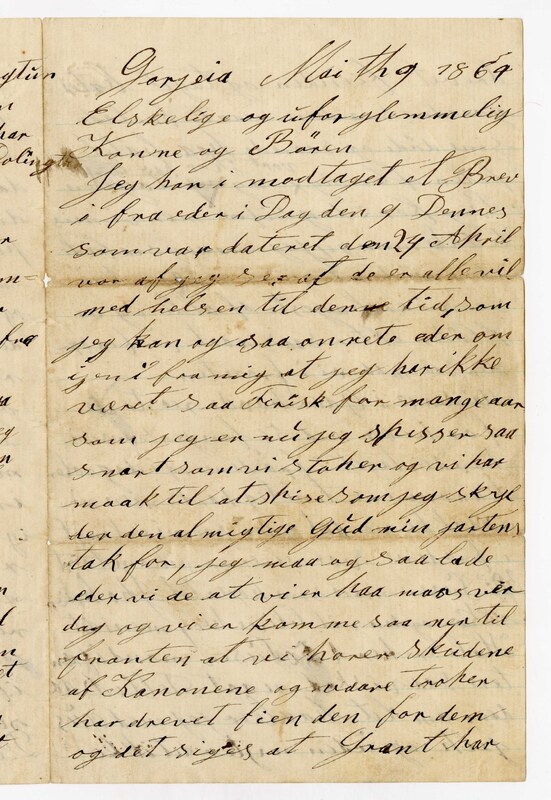 gtun
har
Doling
fra
Gorjeia Mai th 9 1864
Elskelige og ufor glemmelig
Konne og Bören
Jeg har i modtaget et Brev
i fra eder i Dag den 9 Dennes
som var dateret den 24 April
vor af jeg ser at de er alle vil
med helsen til denne tid, som
jeg kan og saa on rete eder om
ijen i fra mig at jeg har ikke
været saa Frisk for mange aar
som jeg er nu jeg spisser saa
snart som vi stoper og vi har
maak til at spise som jeg skyl
der den almigtige Gud min jartens
tak for, jeg maa og saa lade
eder vi de at vi er paa mars vær
dag og vi er komme saa nyr til
franten at vi horer skudene
af Kanonene og vdare troper
har drevet fienden for dem
og det siges at Grant har